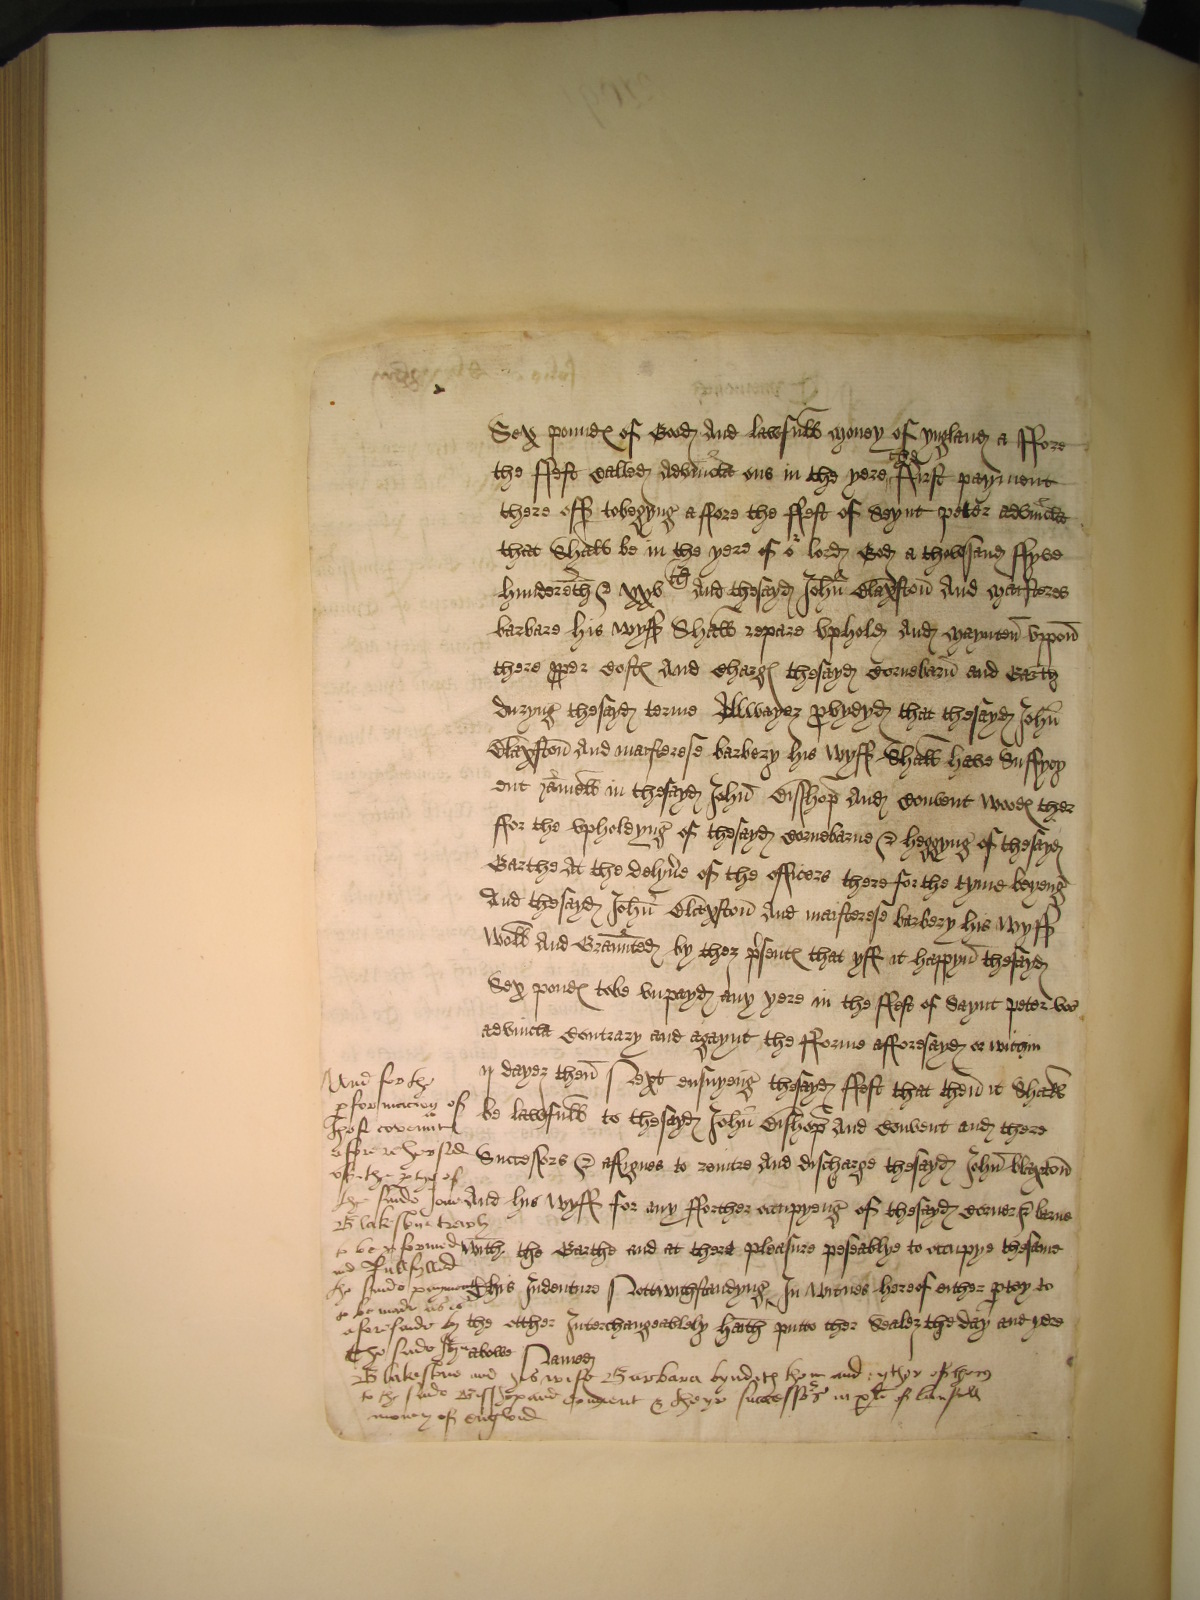 Sex poundes of Good And lawfull money of yngland a ffore
the ffest called Advincla ens in the yere the ffirst payment
there off tobegyng affore the ffest of Saynt peter advincla
that Shall be in the yere of or lord God a thowsand ffyve
hundereth & xxv And thesayd John Claxston And maistores
barbare his wyff Shall repare vphold And maynten vppon
there pper costes And Charges thesayd Cornebarn and Garth
duryng thesayd terme Allwayez pvydyd that thesayd John
Claxston And maisterese barbery his wyff Shall have Suffycy
ent in thesayd John Bisshop And Convent woodes ther
ffor the vpholdyng of thesayd Cornebarne & heggyng of thesayd
Garthe At the delyve of the officers there for the tyme beyeng
And thesayd John Claxston And maisterese barbery his wyff
woll And Graunted by thez psentes that yff it happyn thesayd
Sex pondes tobe vnpayd any yere in the ffest of Saynt peter
advincla Contrary and agaynt the fforme afforesayd or within
dayez then Next ensuyeng thesayd ffest that then it Shall
be lawfull to thesayd John Bishop And Convent and there
Successors & assignes to and discharge thesayd John Claxton
And his wyff for any fforther occupyeng of thesayd Corne barne
with the Garthe and at there pleasure peseablye to occupye thesame
this Indenture Nottwithstandyng In witnes hereof either ptey to
the other Interchangeablely hath putto ther Sealez the day and yere
above Named
And for the
pformacion of
covenntes
afore rehersed
of the ptye of
the saide John
Blakston trewly
to be pformed
and Fullfylled
the saide payment
to be made as is
aforsaide by
the saide John
Blakestone and his wife Barbara byndeth them and eyther of them
to the saide Bisshop and convent & theyr successors in of lawfull
money of englond